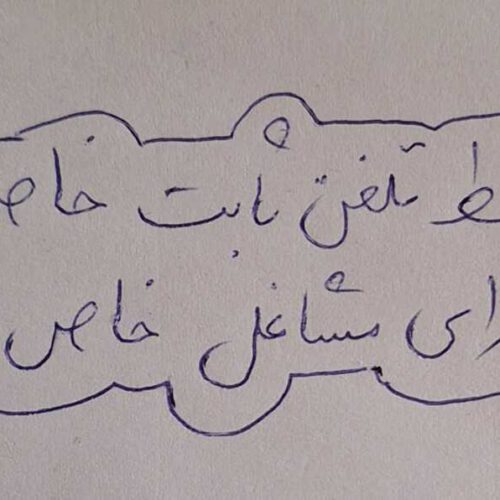 ط تلفن ثابت خاص
رای مشاغل خاص